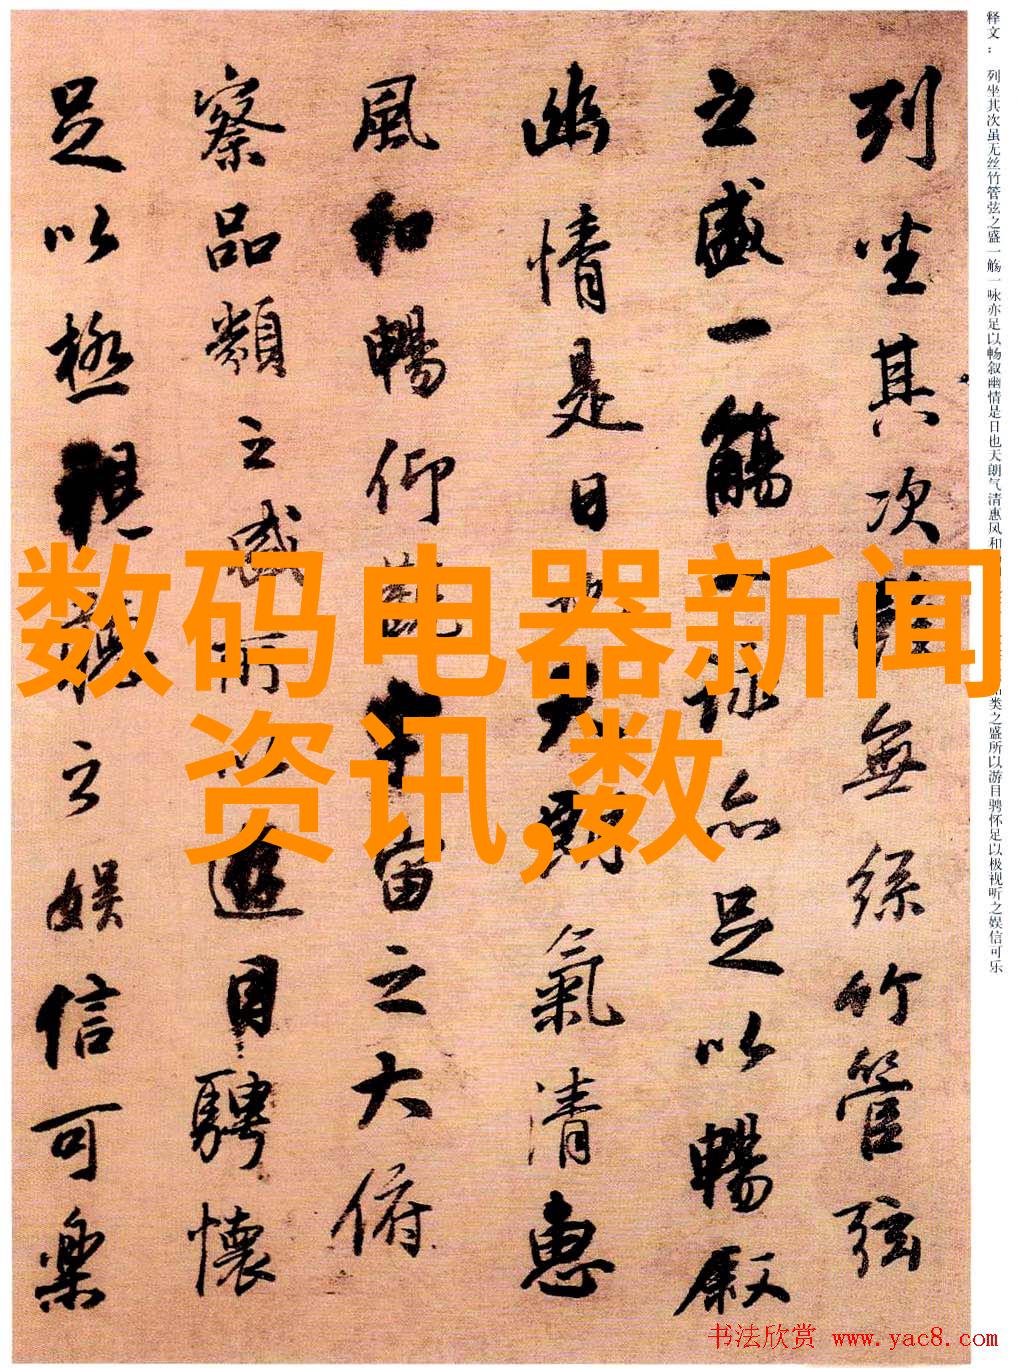 释文： 列坐其次虽无丝竹管弦之盛一觞一咏亦足以畅叙幽情是日也天朗气清惠风和类之盛所以游目骋怀足以极视听之娱信可乐
列坐其次雖無絲竹管弦
之盛一觴一詠亦足以暢叙
幽情是日也天朗氣清惠
風和暢仰觀宇宙之大俯
察品類之盛所以遊目騁懷
足以極視聽之娛信可樂
数码电器新闻
资讯,数
书法欣赏 www.yac8.com